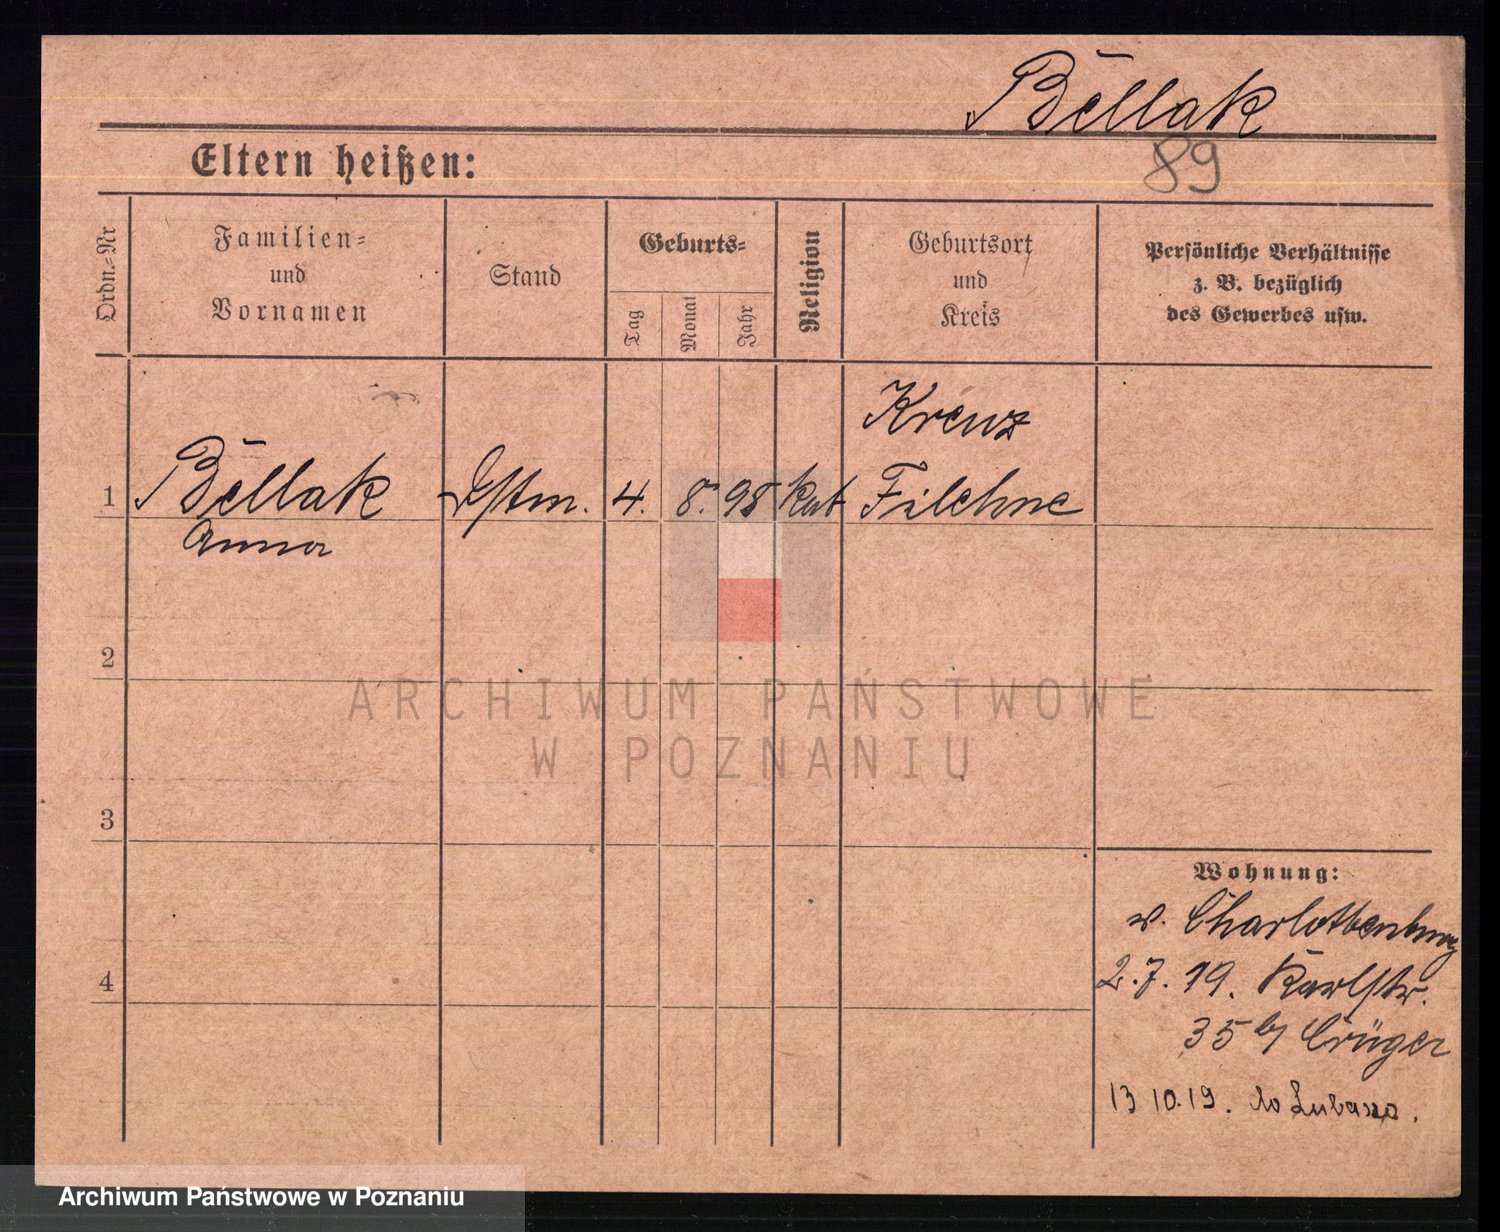 Bellak
89
Eltern heißen:
Ordn.-Nr
Familien-
und
Vornamen
Stand
Geburts-
Tag
Monat
Jahr
Religion
Geburtsort
und
Kreis
Persönliche Verhältnisse
z. B. bezüglich
des Gewerbes usw.
Kreuz
1 Bellak 4. 8. 98 Kat Filehne
Anna
2
3
4
ARCHIWUM PAŃSTWOWE
W POZNANIU
Wohnung:
v. Charlottenburg
2.7.19. Karlstr.
35 b/ Crüger
13 10.19. do Lubasza.
Archiwum Państwowe w Poznaniu